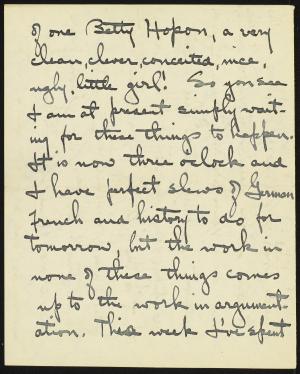 of one Betty Hopson, a very
clean, clever, conceited, nice,
ugly, little girl! So you see
I am at present simply wait-
ing for these things to happen.
It is now three oclock and
I have perfect slews of German
French and history to do for
tomorrow, but the work in
none of these things comes
up to the work in argument-
ation. This week I've spent